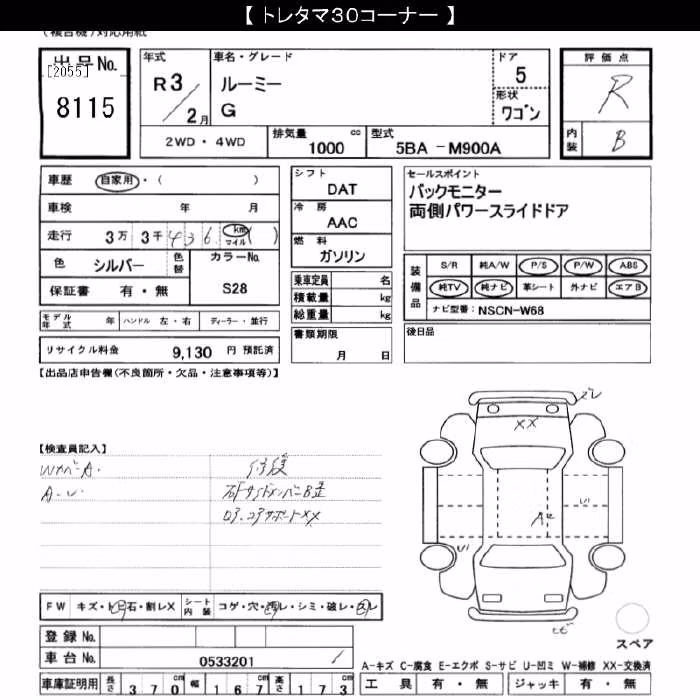 【 トレタマ30コーナー 】
(複合機)対応用紙
出品No.
[2055]
8115
年式
R3
2月
車名・グレード
ルーミー
G
ドア
5
形状
ワゴン
評価点
R
内装
B
2WD・4WD
排気量
1000 cc
型式
5BA -M900A
車歴 自家用・( )
車検 年 月
走行 3万 3千 4 3 6 km マイル ( )
色 シルバー 色替
カラーNo.
S28
保証書 有・無
シフト
DAT
冷房
AAC
燃料
ガソリン
乗車定員 名
積載量 kg
総重量 kg
セールスポイント
バックモニター
両側パワースライドドア
装備品
S/R 純A/W P/S P/W ABS
純TV 純ナビ 革シート 外ナビ エアB
ナビ型番: NSCN-W68
モデル年式 年 ハンドル 左・右 ディーラー・並行
書類期限
月 日
後日品
リサイクル料金 9,130 円 預託済
【出品店申告欄(不良箇所・欠品・注意事項等)】
ズレ
XX
【検査員記入】
修復
A・U.
XX
AE
U
U
FW キズ・トビ石・割レX
シート内装 コゲ・穴・汚レ・シミ・破レ・スレ
登録No.
車台No. 0533201
スペア
A-キズ C-腐食 E-エクボ S-サビ U-凹ミ W-補修 XX-交換済
車庫証明用 長さ 370 cm 幅 167 cm 高さ 173 cm
工具 有・無 ジャッキ 有・無